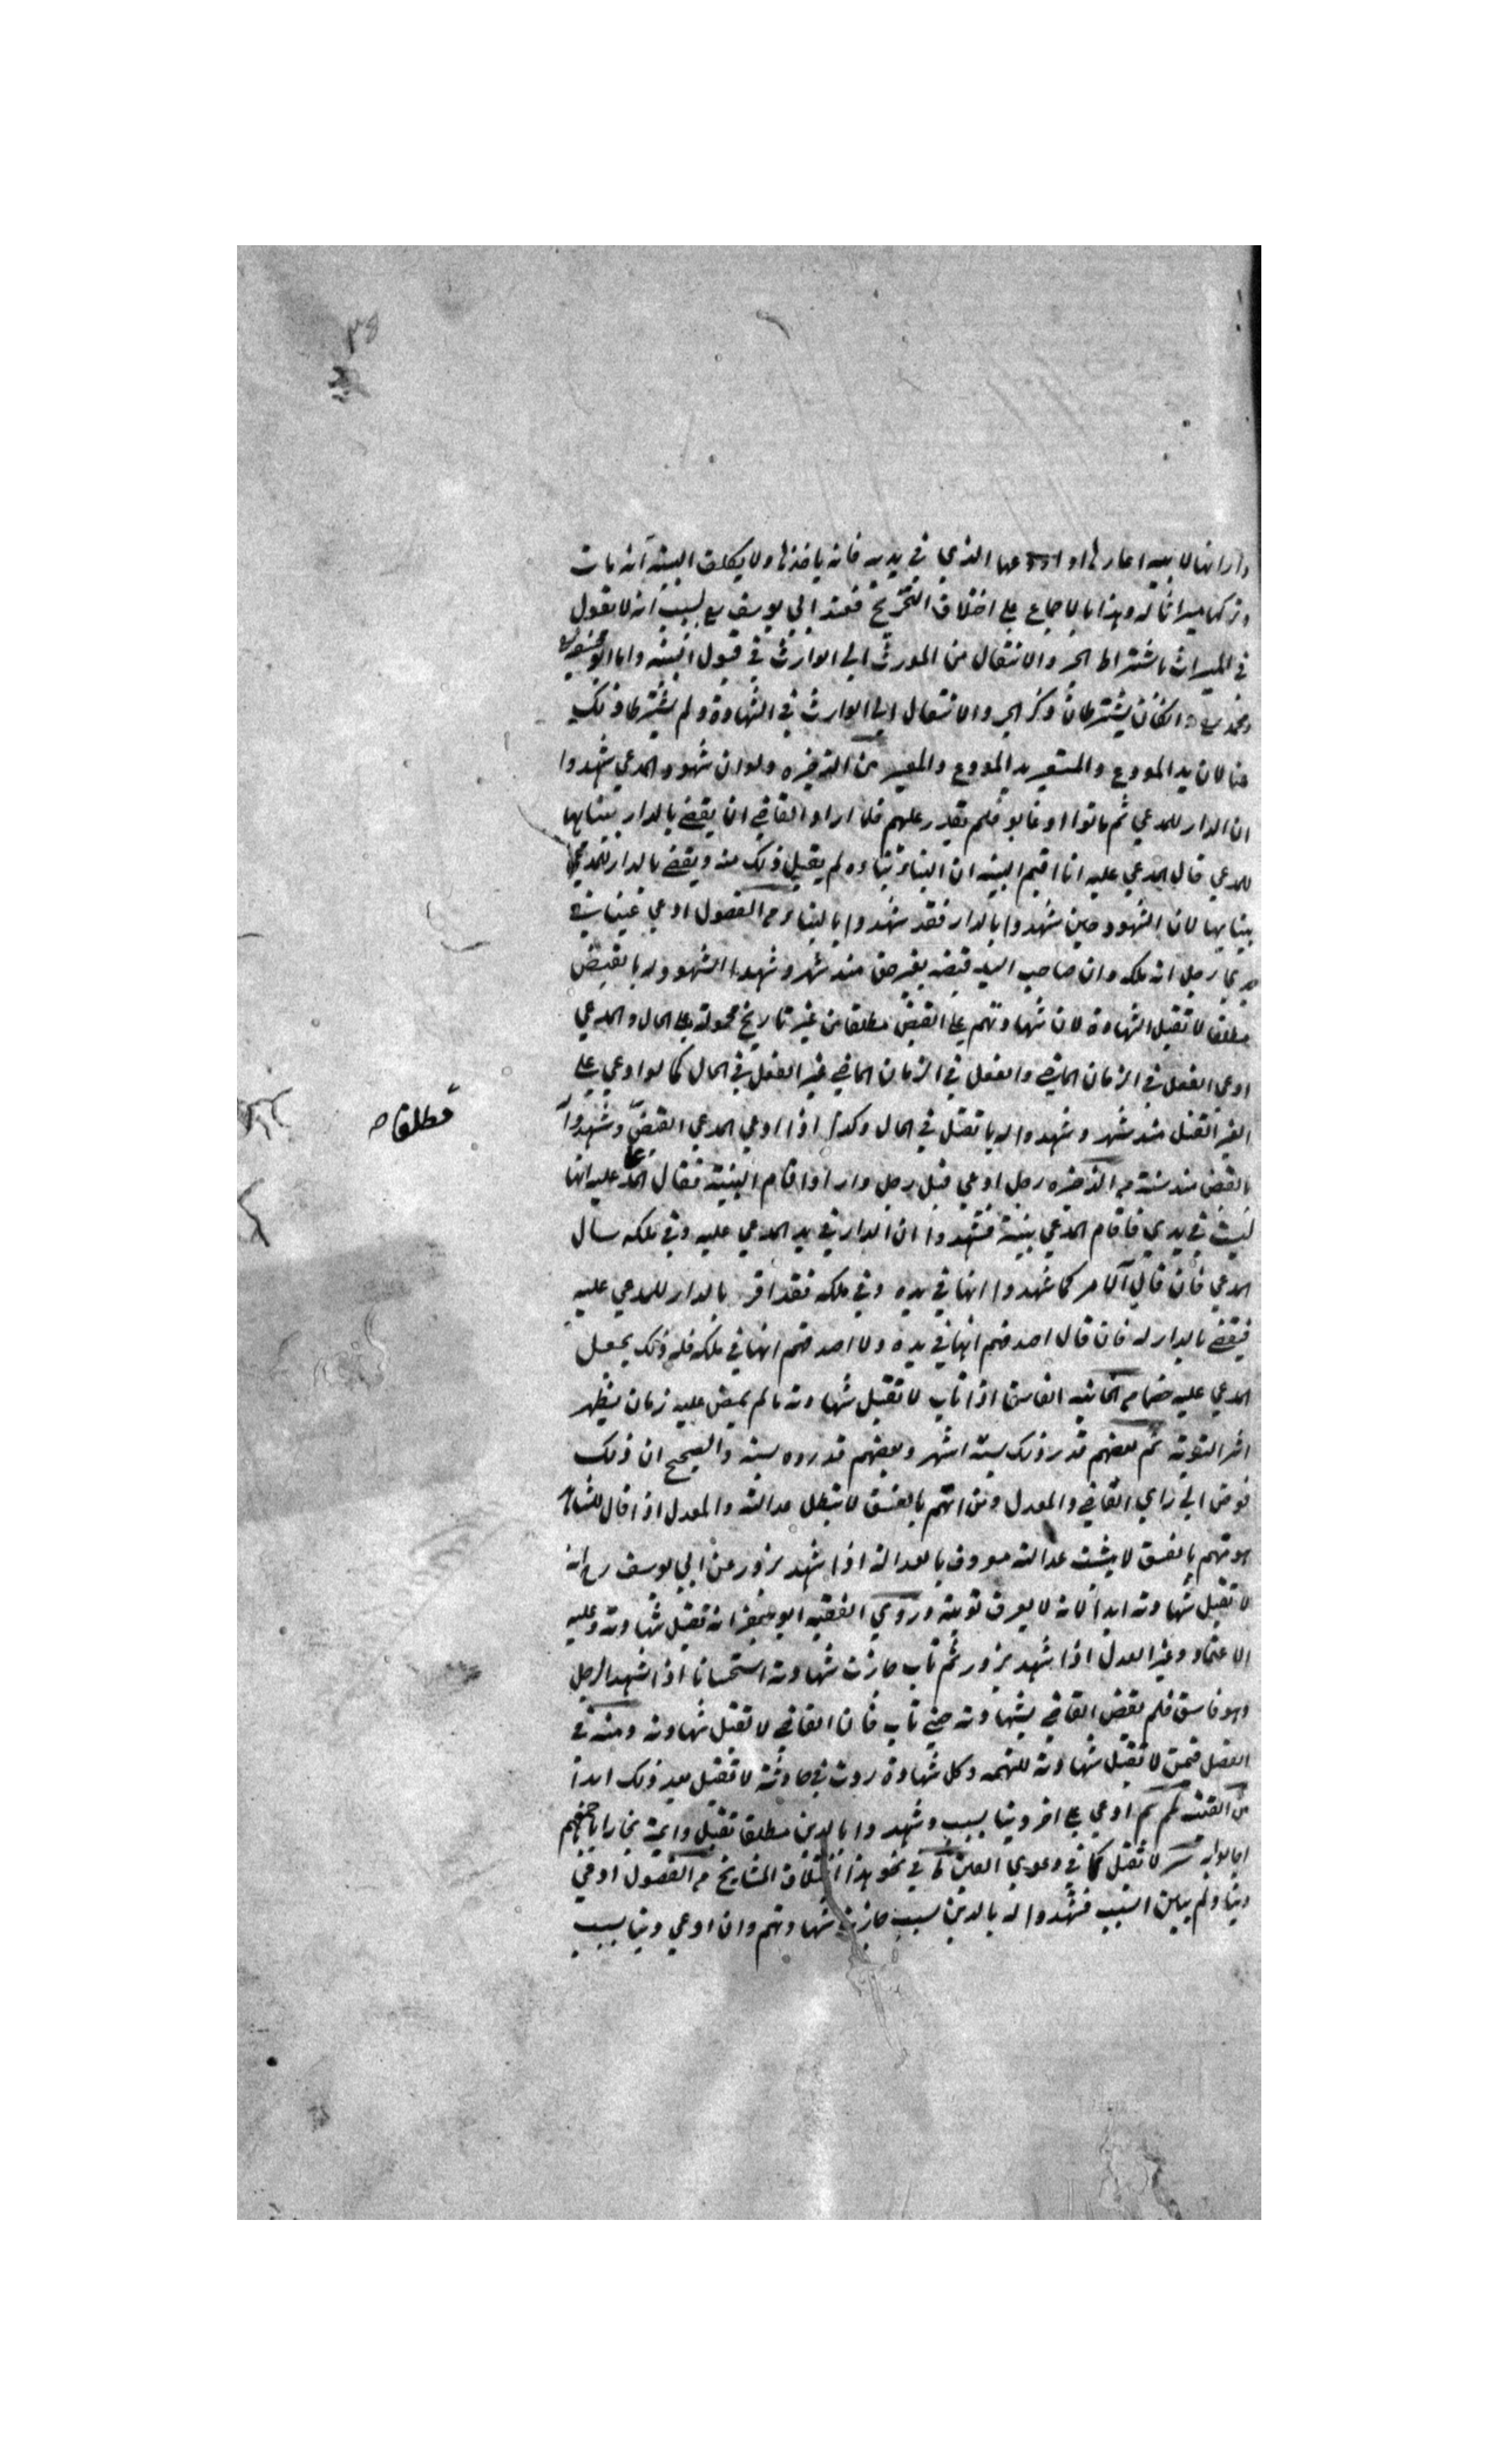 دارا انها لابيه اعارها او اودعها الذي في يديه فانه ياخذها ولا يكلف البينة انه مات
وتركها ميراثا له وهذا بالاجماع على اختلاف التخريج فعند ابي يوسف رح بسبب انه لا يقول
في الميراث باشتراط الجر والانتقال من المورث الى الوارث في قبول البينة واما ابو حنيفة
ومحمد رح وان كان يشترطان ذكر الجر والانتقال الى الوارث في الشهادة ولم يشترطا ذلك
هنا لان يد المودع والمستعير يد المودع والمعير من الذخيره ولو ان شهود المدعي شهدوا
ان الدار للمدعي ثم ماتوا او غابوا فلم يقدر عليهم فلما اراد القاضي ان يقضي بالدار ببنايها
للمدعي قال المدعي عليه انا اقيم البينه ان البناء بناءه لم يقبل ذلك منه ويقضي بالدار للمدعي
ببنايها لان الشهود حين شهدوا بالدار فقد شهدوا بالبناء من الفصول ادعي عينا في
يدي رجل انه ملكه وان صاحب اليد قبضه بغير حق منذ شهر وشهدا الشهود له بالقبض
مطلقا لا تقبل الشهادة لان شهادتهم على القبض مطلقا من غير تاريخ محمولة على الحال والمدعي
ادعي الفعل في الزمان الماضي والفعل في الزمان الماضي غير الفعل في الحال كما لو ادعي على
الغير القتل منذ شهر وشهدوا له بالقتل في الحال وكذا اذا ادعي المدعي القبض وشهدوا
مطلقا
بالقبض منذ سنة من الذخيره رجل ادعي قبل رجل دارا واقام البينة فقال المدعى عليه انها
ليست في يدي فاقام المدعي بينة فشهدوا ان الدار في يد المدعي عليه وفي ملكه سال
المدعي فان قال الامر كما شهدوا انها في يده وفي ملكه فقد اقر بالدار للمدعي عليه
فيقضي بالدار له فان قال اصدقهم انها في يده ولا اصدقهم انها في ملكه فله ذلك يجعل
المدعي عليه خصما من الخانيه الفاسق اذا تاب لا تقبل شهادته ما لم يمض عليه زمان يظهر
اثر التوبة ثم بعضهم قدر ذلك بستة اشهر وبعضهم قدروه بسنة والصحيح ان ذلك
فوض الى راي القاضي والمعدل ومن اتهم بالفسق لا تبطل عدالته والمعدل اذا قال للشاهد
هو متهم بالفسق لا يثبت عدالته معروف بالعدالة اذا شهد بزور عن ابي يوسف رح انه
لا تقبل شهادته ابدا لانه لا يعرف توبته وروي الفقيه ابو جعفر انه تقبل شهادته وعليه
الاعتماد وغير العدل اذا شهد بزور ثم تاب جازت شهادته استحسانا اذا شهد الرجل
وهو فاسق فلم يقض القاضي بشهادته حتى تاب فان القاضي لا تقبل شهادته ومنه في
الفصل فمن لا تقبل شهادته للتهمه وكل شهادة ردت في حادثة لا تقبل بعد ذلك ابدا
من القنيه ادعي على اخر دينا بسبب وشهدوا بالدين مطلقا تقبل وايمة بخارا باجمعهم
اجابوا لا تقبل كما في دعوي العين في نحو هذا اختلاف المشايخ من الفصول ادعي
دينا ولم يبين السبب فشهدوا له بالدين بسبب جازت شهادتهم وان ادعي دينا بسبب